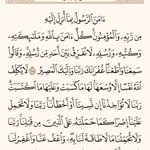 ءَامَنَ ٱلرَّسُولُ بِمَآ أُنزِلَ إِلَيْهِ
مِن رَّبِّهِۦ وَٱلْمُؤْمِنُونَ كُلٌّ ءَامَنَ بِٱللَّهِ وَمَلَٰٓئِكَتِهِۦ
وَكُتُبِهِۦ وَرُسُلِهِۦ لَا نُفَرِّقُ بَيْنَ أَحَدٍ مِّن رُّسُلِهِۦ وَقَالُوا۟
سَمِعْنَا وَأَطَعْنَا غُفْرَانَكَ رَبَّنَا وَإِلَيْكَ ٱلْمَصِيرُ لَا يُكَلِّفُ
ٱللَّهُ نَفْسًا إِلَّا وُسْعَهَا لَهَا مَا كَسَبَتْ وَعَلَيْهَا مَا ٱكْتَسَبَتْ
رَبَّنَا لَا تُؤَاخِذْنَآ إِن نَّسِينَآ أَوْ أَخْطَأْنَا رَبَّنَا وَلَا تَحْمِلْ
عَلَيْنَآ إِصْرًا كَمَا حَمَلْتَهُۥ عَلَى ٱلَّذِينَ مِن قَبْلِنَا رَبَّنَا
وَلَا تُحَمِّلْنَا مَا لَا طَاقَةَ لَنَا بِهِۦ وَٱعْفُ عَنَّا وَٱغْفِرْ لَنَا